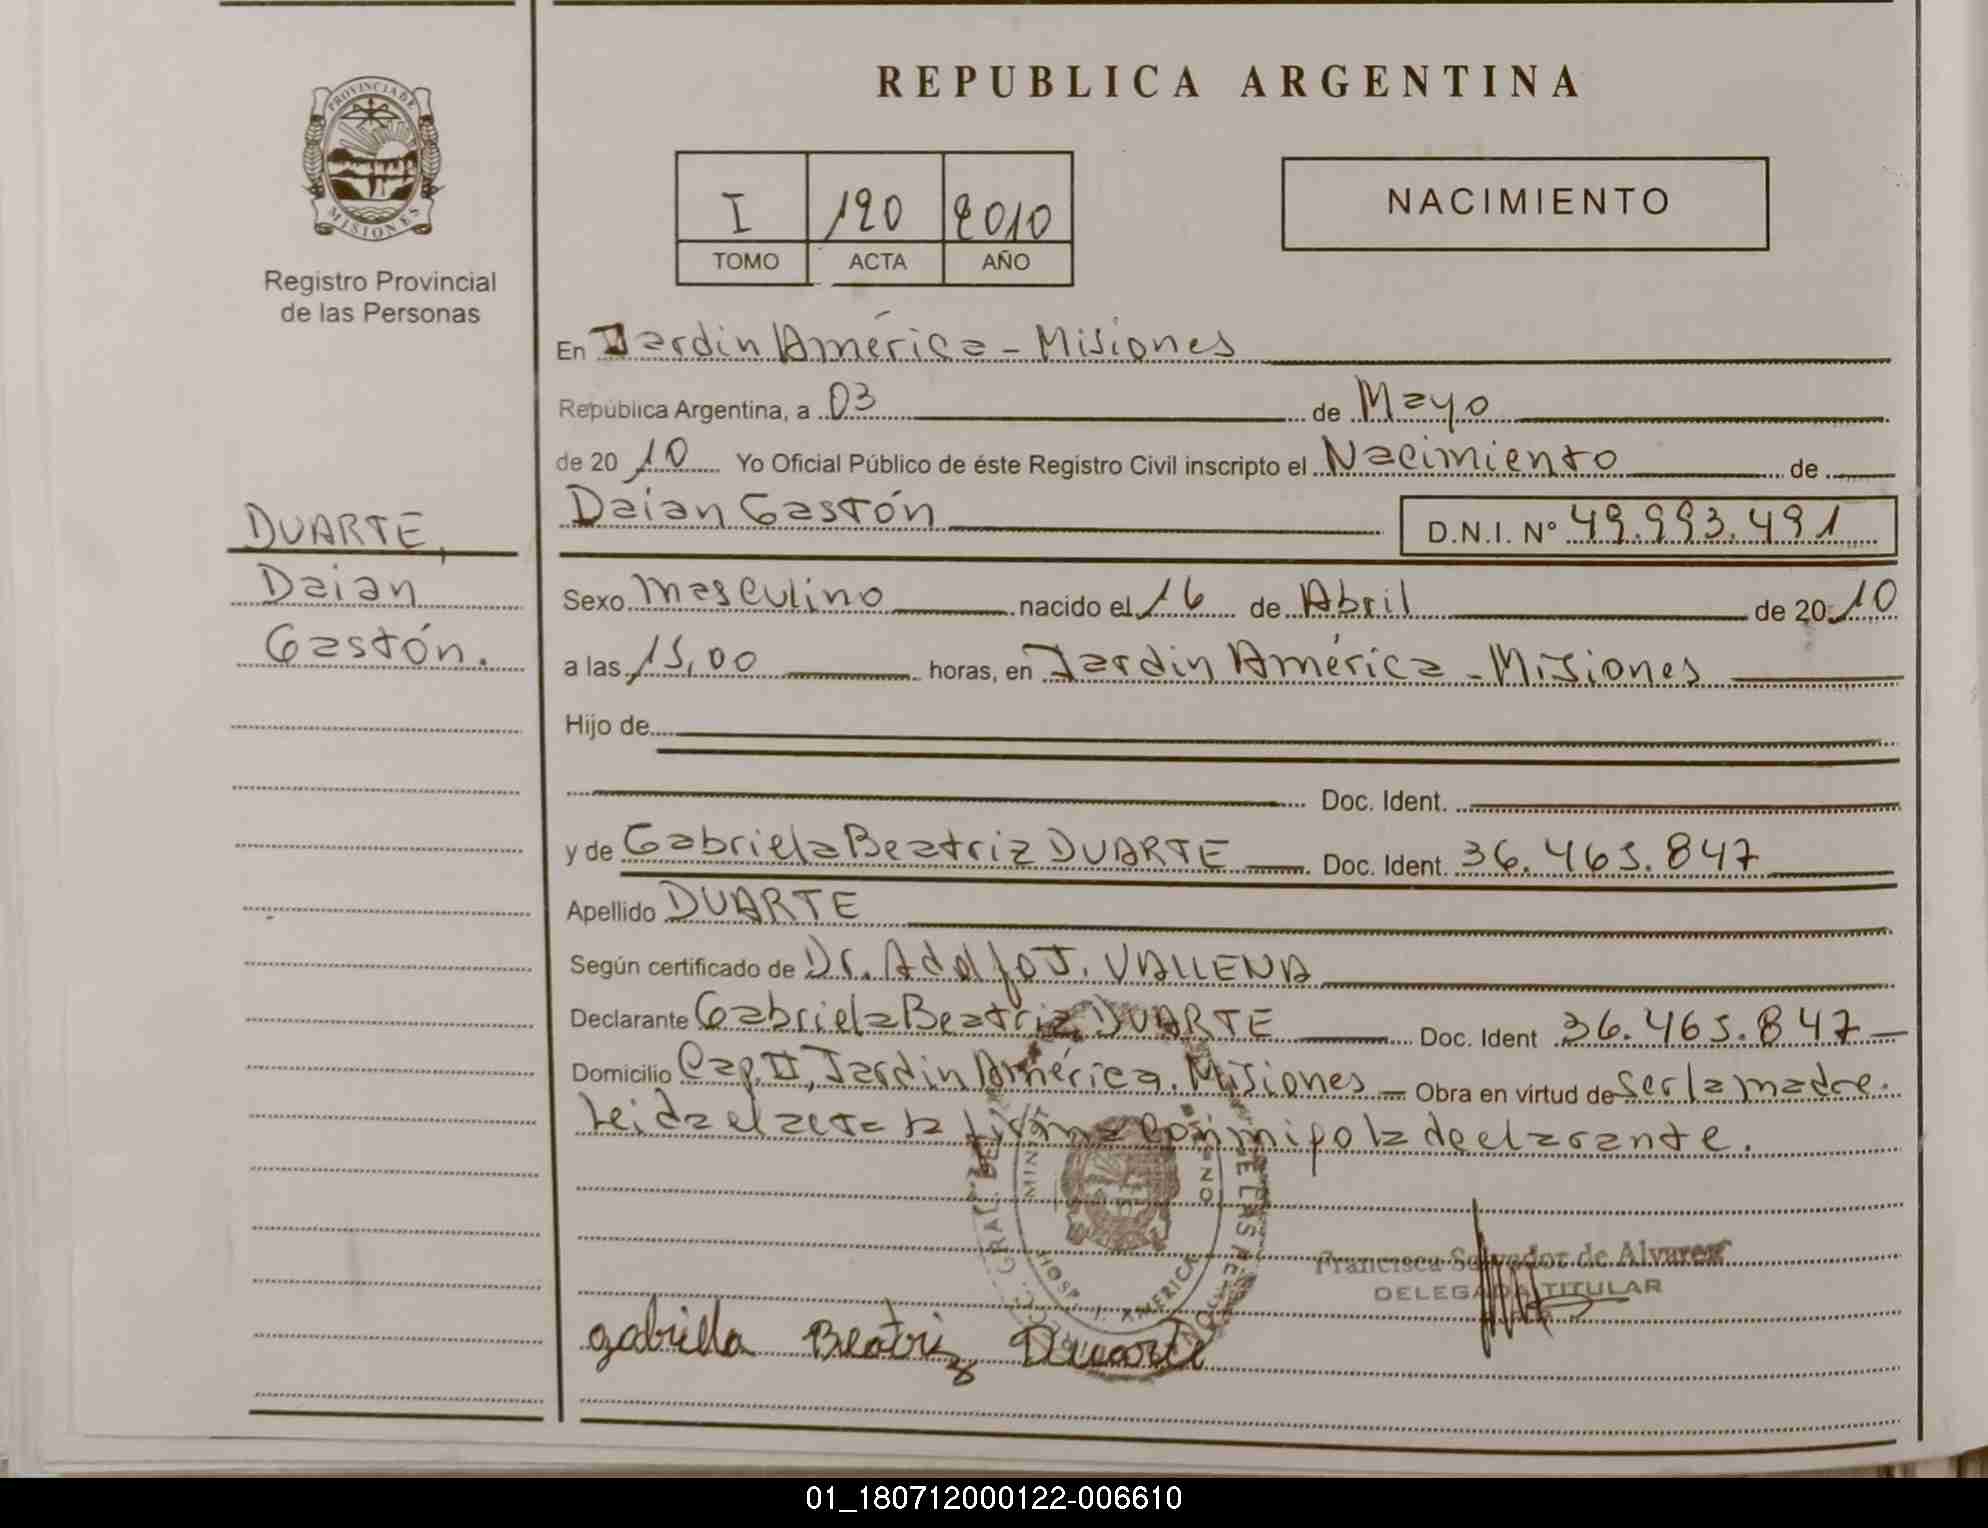 REPUBLICA ARGENTINA
PROVINCIA DE
MISIONES
Registro Provincial
de las Personas
I 120 2010
TOMO ACTA AÑO
NACIMIENTO
En Jardin América - Misiones
República Argentina, a 03 de Mayo
de 20 10 Yo Oficial Público de éste Registro Civil inscripto el Nacimiento de
Daian Gastón D.N.I. N° 49.993.491
DUARTE,
Daian
Gastón.
Sexo Masculino nacido el 16 de Abril de 20 10
a las 15,00 horas, en Jardin América - Misiones
Hijo de
Doc. Ident.
y de Gabriela Beatriz DUARTE Doc. Ident. 36.465.847
Apellido DUARTE
Según certificado de Dr. Adolfo J. VALLENA
Declarante Gabriela Beatriz DUARTE Doc. Ident 36.465.847
Domicilio Cap. II, Jardin América. Misiones Obra en virtud de ser la madre.
Leida el acta la firma conmigo la declarante.
Francisca Salvador de Alvarez
DELEGADA TITULAR
HOSP. J. AMERICA
gabriela Beatriz Duuarte
01_180712000122-006610